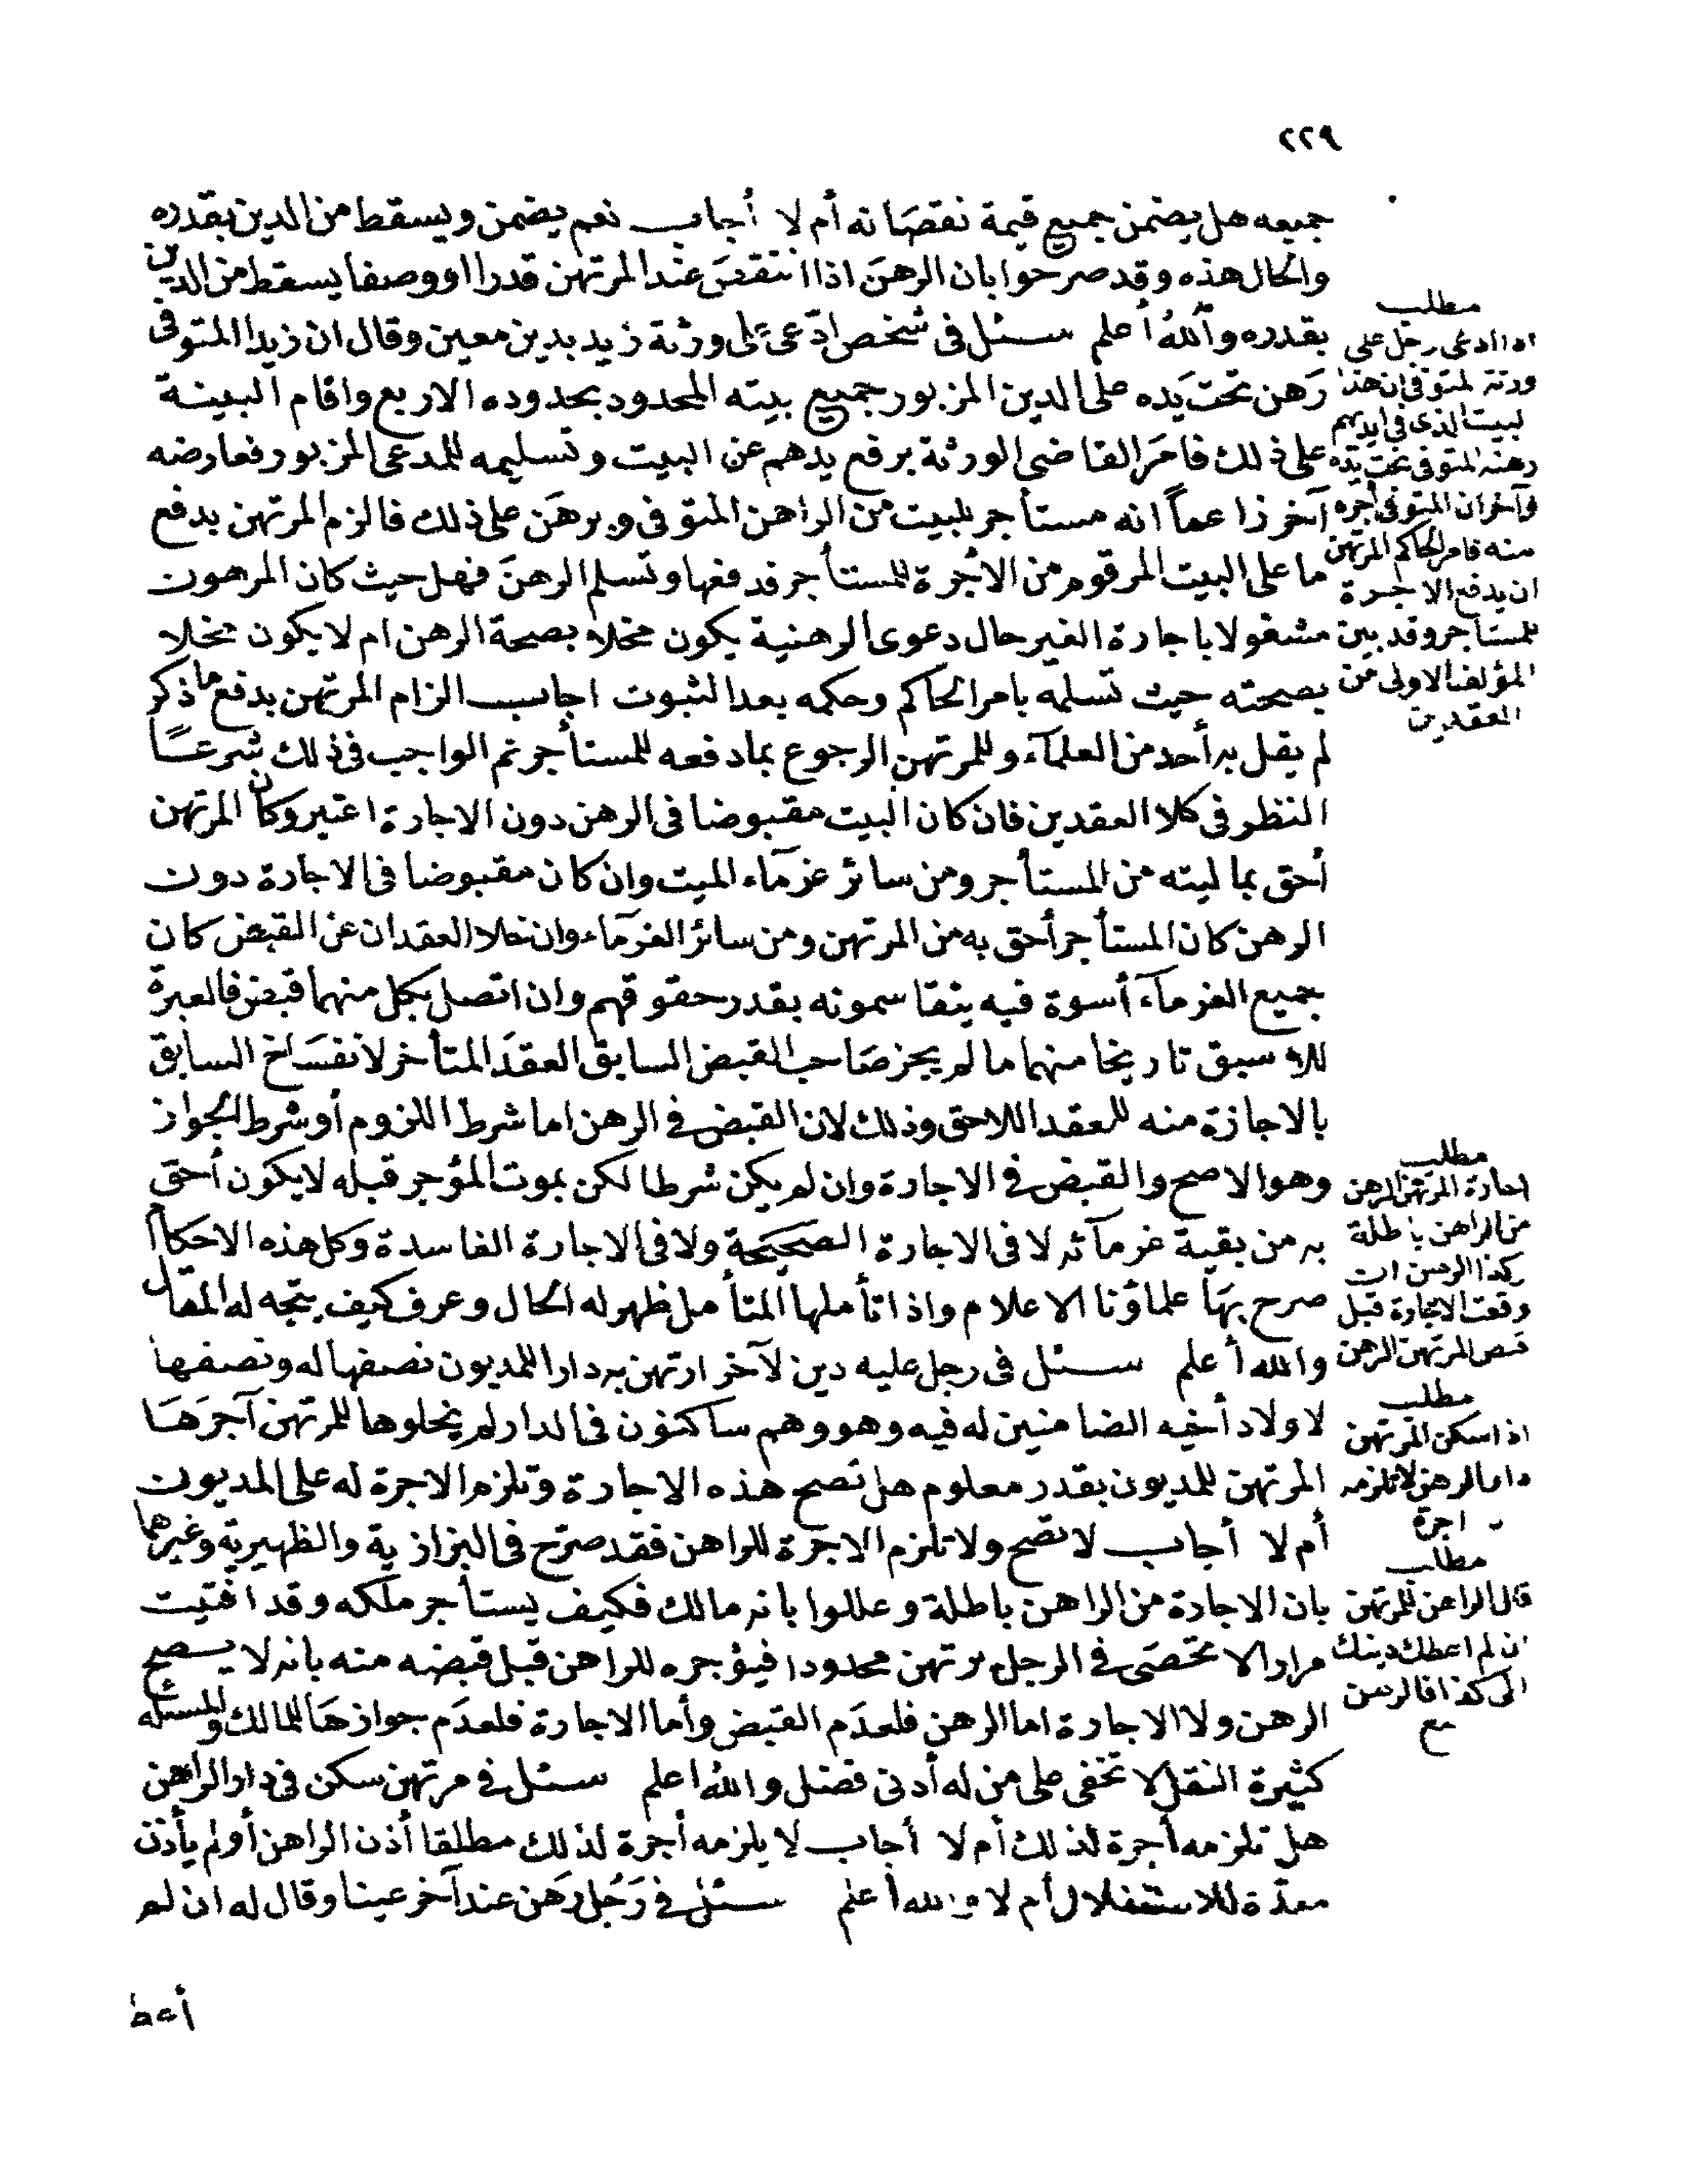 ٢٢٩
جميعه هل يضمن جميع قيمة نقصانه أم لا أجاب نعم يضمن ويسقط من الدين بقدره
والحال هذه وقد صرحوا بان الرهن اذا انتقص عند المرتهن قدرا او وصفا يسقط من الدين
بقدره والله أعلم سئل فى شخص ادّعى على ورثة زيد بدين معين وقال ان زيدا المتوفى
رهن تحت يده على الدين المزبور جميع بيته المحدود بحدوده الاربع واقام البينة
على ذلك فامر القاضى الورثة برفع يدهم عن البيت وتسليمه للمدعى المزبور فعارضه
آخر زاعماً انه مستأجر للبيت من الراهن المتوفى وبرهن على ذلك فالزم المرتهن بدفع
ما على البيت المرقوم من الاجرة للمستأجر فدفعها وتسلم الرهن فهل حيث كان المرهون
مشغولا باجارة الغير حال دعوى الرهنية يكون مخلا بصحة الرهن ام لا يكون مخلا
بصحته حيث تسلمه بامر الحاكم وحكمه بعد الثبوت اجاب الزام المرتهن بدفع ما ذكر
لم يقل به أحد من العلمآء وللمرتهن الرجوع بما دفعه للمستأجر ثم الواجب فى ذلك شرعاً
النظر فى كلا العقدين فان كان البيت مقبوضا فى الرهن دون الاجارة اعتبر وكان المرتهن
أحق بماليته من المستأجر ومن سائر غرمآء الميت وان كان مقبوضا فى الاجارة دون
الرهن كان المستأجر أحق به من المرتهن ومن سائر الغرمآء وان خلا العقدان عن القبض كان
جميع الغرمآء أسوة فيه يتقاسمونه بقدر حقوقهم وان اتصل بكل منهما قبض فالعبرة
للاسبق تاريخا منهما ما لم يجز صاحب القبض السابق العقد المتأخر لانفساخ السابق
بالاجازة منه للعقد اللاحق وذلك لان القبض فى الرهن اما شرط اللزوم أو شرط الجواز
وهو الاصح والقبض فى الاجارة وان لم يكن شرطا لكن بموت المؤجر قبله لا يكون أحق
به من بقية غرمآئه لا فى الاجارة الصحيحة ولا فى الاجارة الفاسدة وكل هذه الاحكام
صرح بها علماؤنا الاعلام واذا تأملها المتأمل ظهر له الحال وعرف كيف يتجه له المقال
والله أعلم سئل فى رجل عليه دين لآخر ارتهن به دارا للمديون نصفها له ونصفها
لاولاد أخيه الضامنين له فيه وهو وهم ساكنون فى الدار لم يخلوها للمرتهن آجرها
المرتهن للمديون بقدر معلوم هل تصح هذه الاجارة وتلزم الاجرة له على المديون
أم لا أجاب لا تصح ولا تلزم الاجرة للراهن فقد صرّح فى البزازية والظهيرية وغيرهما
بان الاجارة من الراهن باطلة وعللوا بانه مالك فكيف يستأجر ملكه وقد افتيت
مرارا لا تحصى فى الرجل يرتهن محدودا فيؤجره للراهن قبل قبضه منه بانه لا يصح
الرهن ولا الاجارة اما الرهن فلعدم القبض وأما الاجارة فلعدم جوازها للمالك والمسئلة
كثيرة النقل لا تخفى على من له أدنى فضل والله اعلم سئل فى مرتهن سكن فى دار الراهن
هل تلزمه أجرة لذلك أم لا أجاب لا يلزمه أجرة لذلك مطلقا أذن الراهن أو لم يأذن
معدّة للاستغلال أم لا والله أعلم سئل فى رجل رهن عند آخر عينا وقال له ان لم
أعط
مطلب
اذا ادعى رجل على
ورثة المتوفى ان هذا
البيت الذى فى ايديهم
رهنه المتوفى تحت يده
وآخر ان المتوفى أجره
منه فامر الحاكم المرتهن
ان يدفع الاجرة
للمستأجر وقد بين
المؤلف الاولى من
العقدين
مطلب
اجارة المرتهن الرهن
من الراهن باطلة
كذا الرهن ان
وقعت الاجارة قبل
قبض المرتهن الرهن
مطلب
اذا سكن المرتهن
دار الرهن لا تلزمه
اجرة
مطلب
قال الراهن للمرتهن
ان لم اعطك دينك
الى كذا فالرهن
بيع